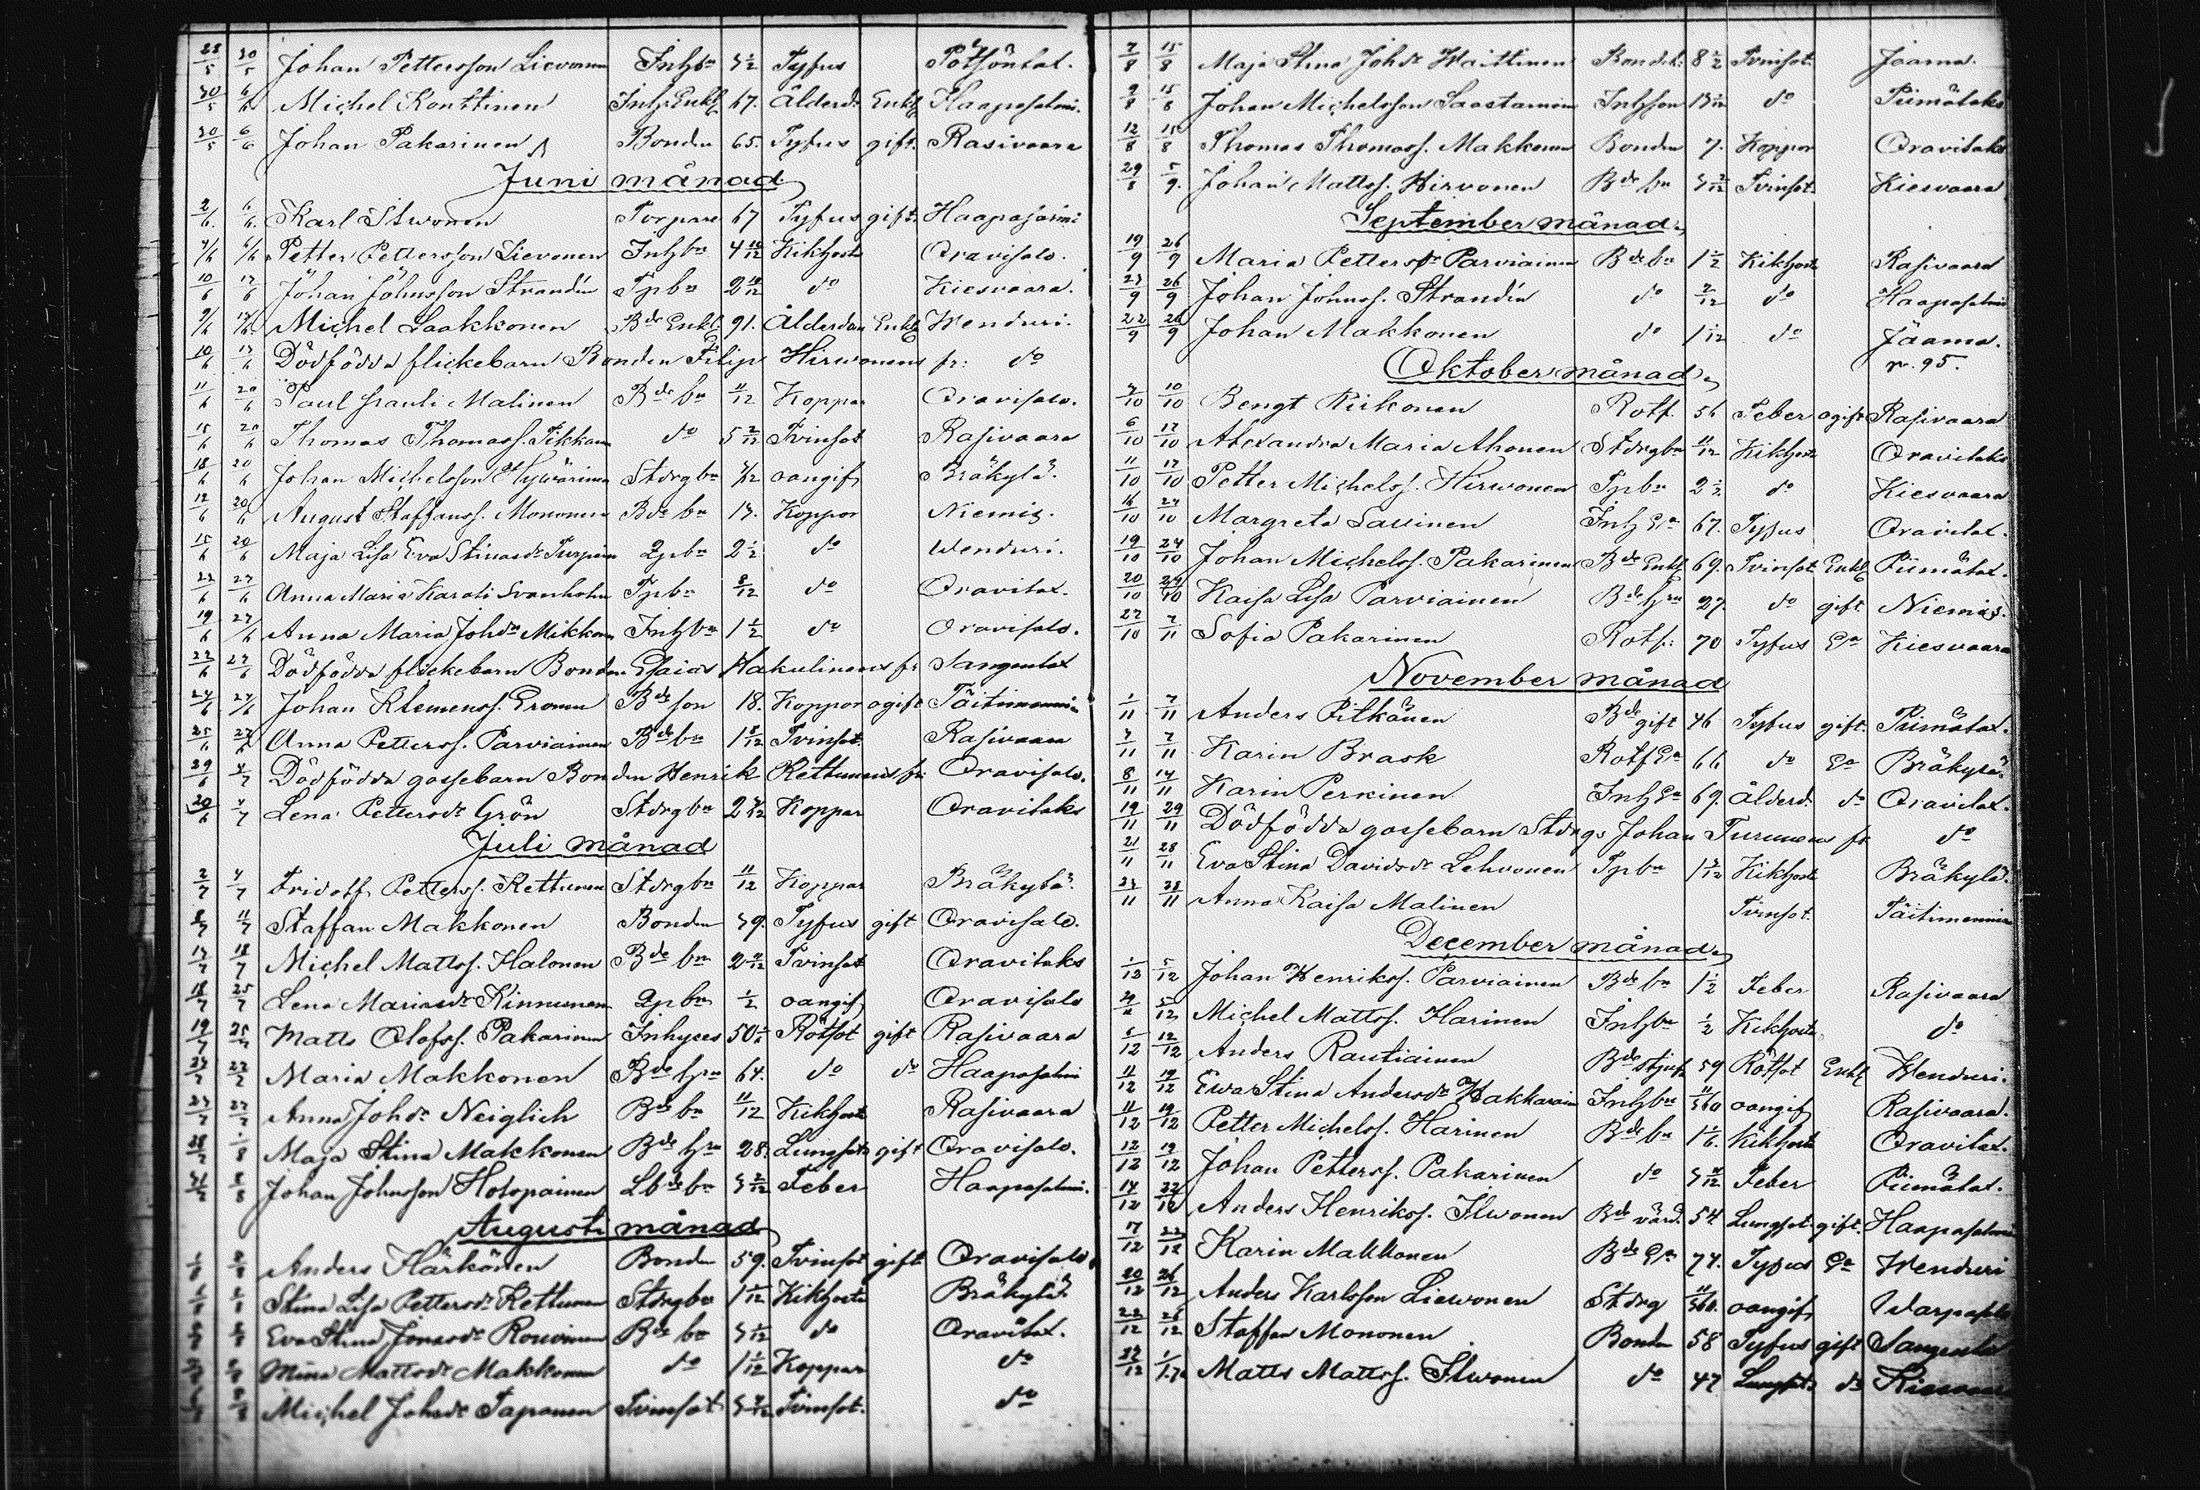 28/5 30/5 Johan Pettersson Lievonen Inhbn 3 1/2 Tyfus Pötsönlat.
30/5 6/6 Michel Konttinen Inh.Enkl. 67. Ålderd. Enkl. Haapasalmi.
30/5 6/6 Johan Pakarinen Bonden 65. Tyfus gift. Rasivaara
Juni månad
2/6. 6/6. Karl Ilwonen Torpare 67 Tyfus gift. Haapasalmi
4/6 6/6 Petter Pettersson Lievonen Inhbn 4 10/12 Kikhosta Oravisalo.
10/6 13/6 Johan Johnsson Strandén Tpbn 2 10/12 do Kiesvaara.
9/6 13/6 Michel Laakkonen Bde Enkl. 91. Ålderdom Enkl. Wenduri.
10/6 13/6 Dödfödda flickebarn Bonden Filip Hirwonens fr: do
11/6 20/6 Paul Pauli Malinen Bde bn 11/12 Koppor Oravisalo.
15/6 20/6 Thomas Thomass. Tikkan do 5 2/12 Tvinsot Rasivaara
18/6 20/6 Johan Michelsson Hywärinen Stdrgbn oangif Bräkylä.
12/6 20/6 August Staffanss. Mononen Bde bn 13. Koppor Niemis.
15/6 20/6 Maja Lisa Eva Stinasdr Turpein Qpbn 2 1/2 do Wenduri.
22/6 27/6 Anna Maria Karoli Svanholm Tpbn 8/12 do Oravilax.
19/6 27/6 Anna Maria Johdr Mikkon Inhbn 1 1/2 do Oravisalo.
27/6 27/6 Dödfödda flickebarn Bonden Esaias Hakulinens fr Sangenlax
24/6 27/6 Johan Klemenss. Eronen Bde son 18. Koppor ogift Täitimennie
25/6 27/6 Anna Petterss. Parviainen Bde bn 1 8/12 Tvinsot Rasivaara
29/6 4/7 Dödfödda gossebarn Bonden Henrik Rettunens fr: Oravisalo.
30/6 4/7 Lena Pettersdr Grön Stdrgbn Koppor Oravilaks
Juli månad
2/7 4/7 Fridolf Petterss. Kettunen Stdrgbn 11/12 Koppor Bräkylä.
Staffan Makkonen Bonden 39. Tyfus gift Oravisalo.
13/7 18/7 Michel Mattss. Halonen Bde bn Tvinsot Oravilaks
18/7 25/7 Lena Mariasdr Kinnunen Qpbn 1/2 oangif Oravisalo
19/7 25/7 Matts Olofss. Pakarinen Inhyses 50 Rötsot gift Rasivaara
Maria Makkonen Bde hru 64. do do Haapasalmi
Anna Johdr Neiglich Bde bn 11/12 Kikhosta Rasivaara
Maja Stina Makkonen Bde hru 28. Lungsot gift Oravisalo.
Johan Johnsson Holopainen Lbde bn Feber Haapasalmi.
Augusti månad
Anders Härkönen Bonde 59. Tvinsot gift Oravisalo
Stina Lisa Pettersdr Kettunen Stdrgbn Kikhosta Bräkylä
Eva Stina Jonasdr Rouvinen Bde bn do Oravilax.
Mina Mattsdr Makkonen do Koppor do
Michel Johsdr Taponen Tvinsot Tvinsot. do
7/8 15/8 Maja Stina Johdr Waittinen Bondd: 8 1/2 Tvinsot Jaama.
9/8 15/8 Johan Michelsson Saastamoin Inhson Do Piimälaks
12/8 15/8 Thomas Thomass. Makkonen Bonden 7. Koppor Oravilaks
29/8 5/9. Johan Mattss. Hirvonen Bde bn Tvinsot. Kiesvaara
September månad.
19/9 26/9 Maria Pettersdr Parviainen Bde bn 1 1/2 Kikhosta Rasivaara
23/9 26/9 Johan Johnss. Strandén do do Haapasalmi
22/9 26/9 Johan Makkonen do do Jaama.
n. 95.
Oktober månad.
4/10 10/10 Bengt Riikonen Rotf. 56 Feber ogift Rasivaara
6/10 17/10 Alexandra Maria Ahonen Stdrgbn 11/12 Kikhosta Oravilaks
11/10 17/10 Petter Michelss. Hirwonen Tpbn 2 1/2 do Kiesvaara
16/10 24/10 Margreta Savinen Inh Ea 67. Tyfus Oravilax.
19/10 24/10 Johan Michelss. Pakarinen Bde Enkl. 69. Tvinsot Enkl. Piimälax.
20/10 24/10 Kaisa Lisa Parviainen Bde hru 27. do gift Niemis.
27/10 7/11 Sofia Pakarinen Rotf: 70 Tyfus Ea Kiesvaara
November månad
1/11 7/11 Anders Pitkänen Bde gift 46 Tyfus gift. Piimälax.
4/11 7/11 Karin Brask Rotf Ea 66 do Ea Bräkylä
8/11 14/11 Karin Perkinen Inh Ea 69. Ålderd. do Oravilax.
19/11 29/11 Dödfödda gossebarn Stdrgs Johan Turunens fr do
21/11 28/11 Eva Stina Davidsdr Lehvonen Tpbn Kikhosta Bräkylä.
24/11 28/11 Anna Kaisa Malinen Tvinsot. Täitimennie
December månad.
1/12 5/12 Johan Henrikss. Parviainen Bde bn 1 1/2 Feber Rasivaara
5/12 Michel Mattss. Harinen Inhbn 1/2 Kikhosta do
12/12 Anders Rautiainen Bde stjuf. 59 Rötsot Enkl Wenduri.
11/12 19/12 Ewa Stina Andersdr Hakkarain Inhbn 11/360 oangif. Rasivaara.
11/12 19/12 Petter Michelss. Harinen Bde bn 1 1/6. Kikhosta Oravilax.
12/12 19/12 Johan Petterss. Pakarinen do Feber Piimälax.
14/12 22/12 Anders Henrikss. Ilwonen Bde värd. 54 Lungsot. gift. Haapasalmi
17/12 22/12 Karin Makkonen Bde Ea 74. Tyfus Ea Wenduri
20/12 26/12 Anders Karlsson Liewonen Stdrg 11/360. oangif.
22/12 26/12 Staffan Mononen Bonde 58 Tyfus gift Sangenlax
27/12 Matts Mattss. Ilwonen do 47 Lungsot do